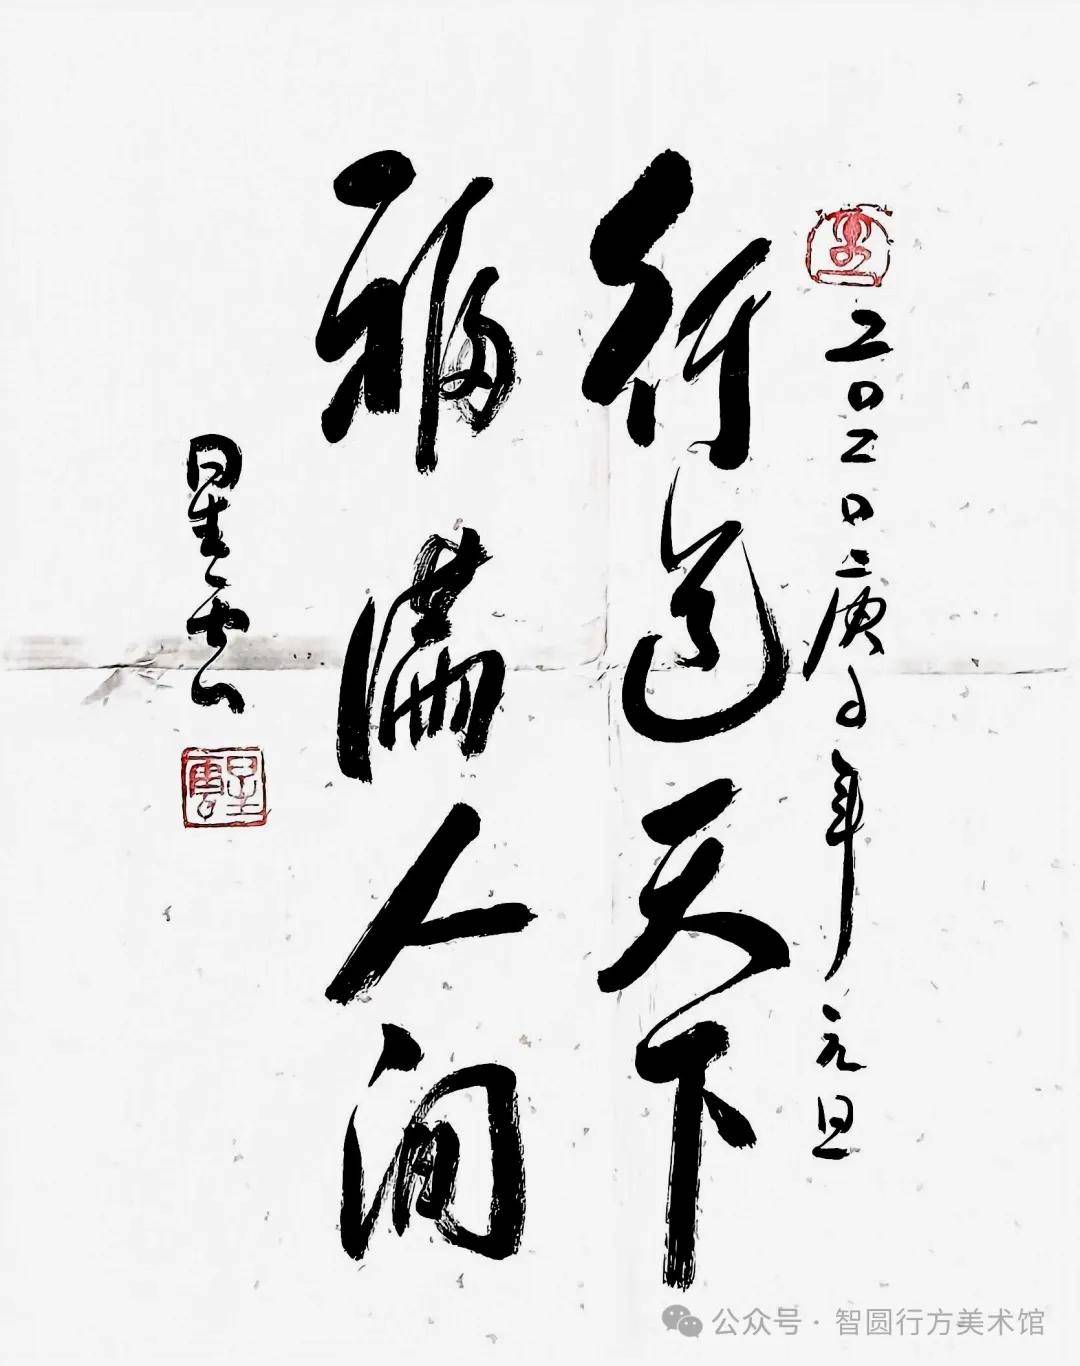 二〇二〇庚子年元旦
行道天下
福滿人間
星雲
星雲
公众号·智圆行方美术馆